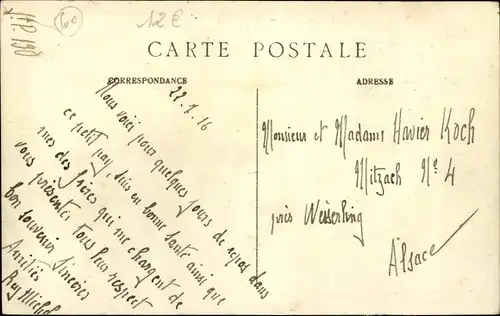 12 €
CARTE POSTALE
CORRESPONDANCE
ADRESSE
22.1.16
Nous voici pour quelques jours de repos dans
ce petit pays, suis en bonne santé ainsi que
mes des frères qui me chargent de
vous présentés tous leur respect
bon souvenir Sincères
Amitiés
Rey Michel
Monsieur et Madame Havier Koch
Mitzach No 4
près Weiserling
Alsace